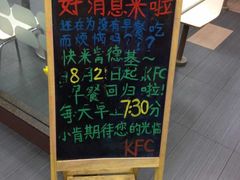 好消息来啦
还在为没有早餐吃
而烦恼吗???
快来肯德基~
8月2日起KFC
早餐回归啦!
每天早上7:30分
小肯期待您的光临
KFC